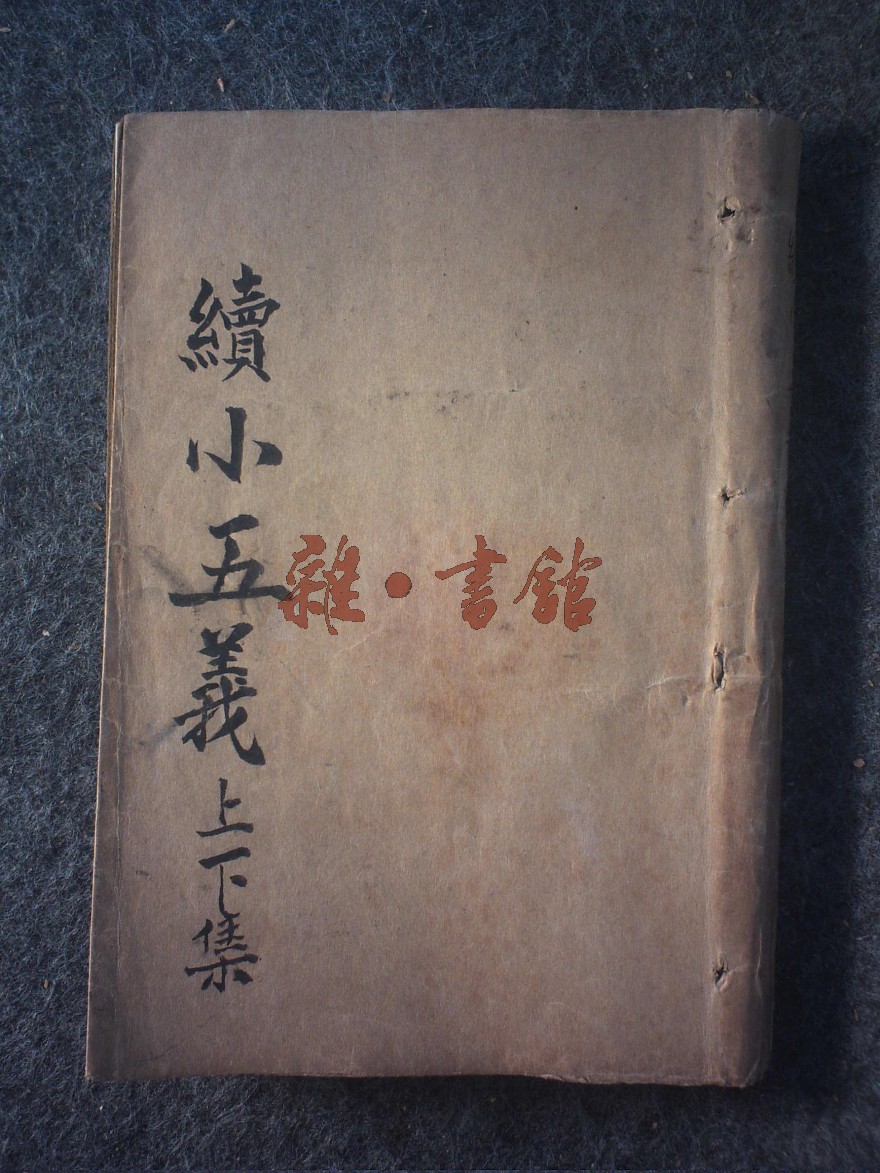 續小五義上下集
雜·書館